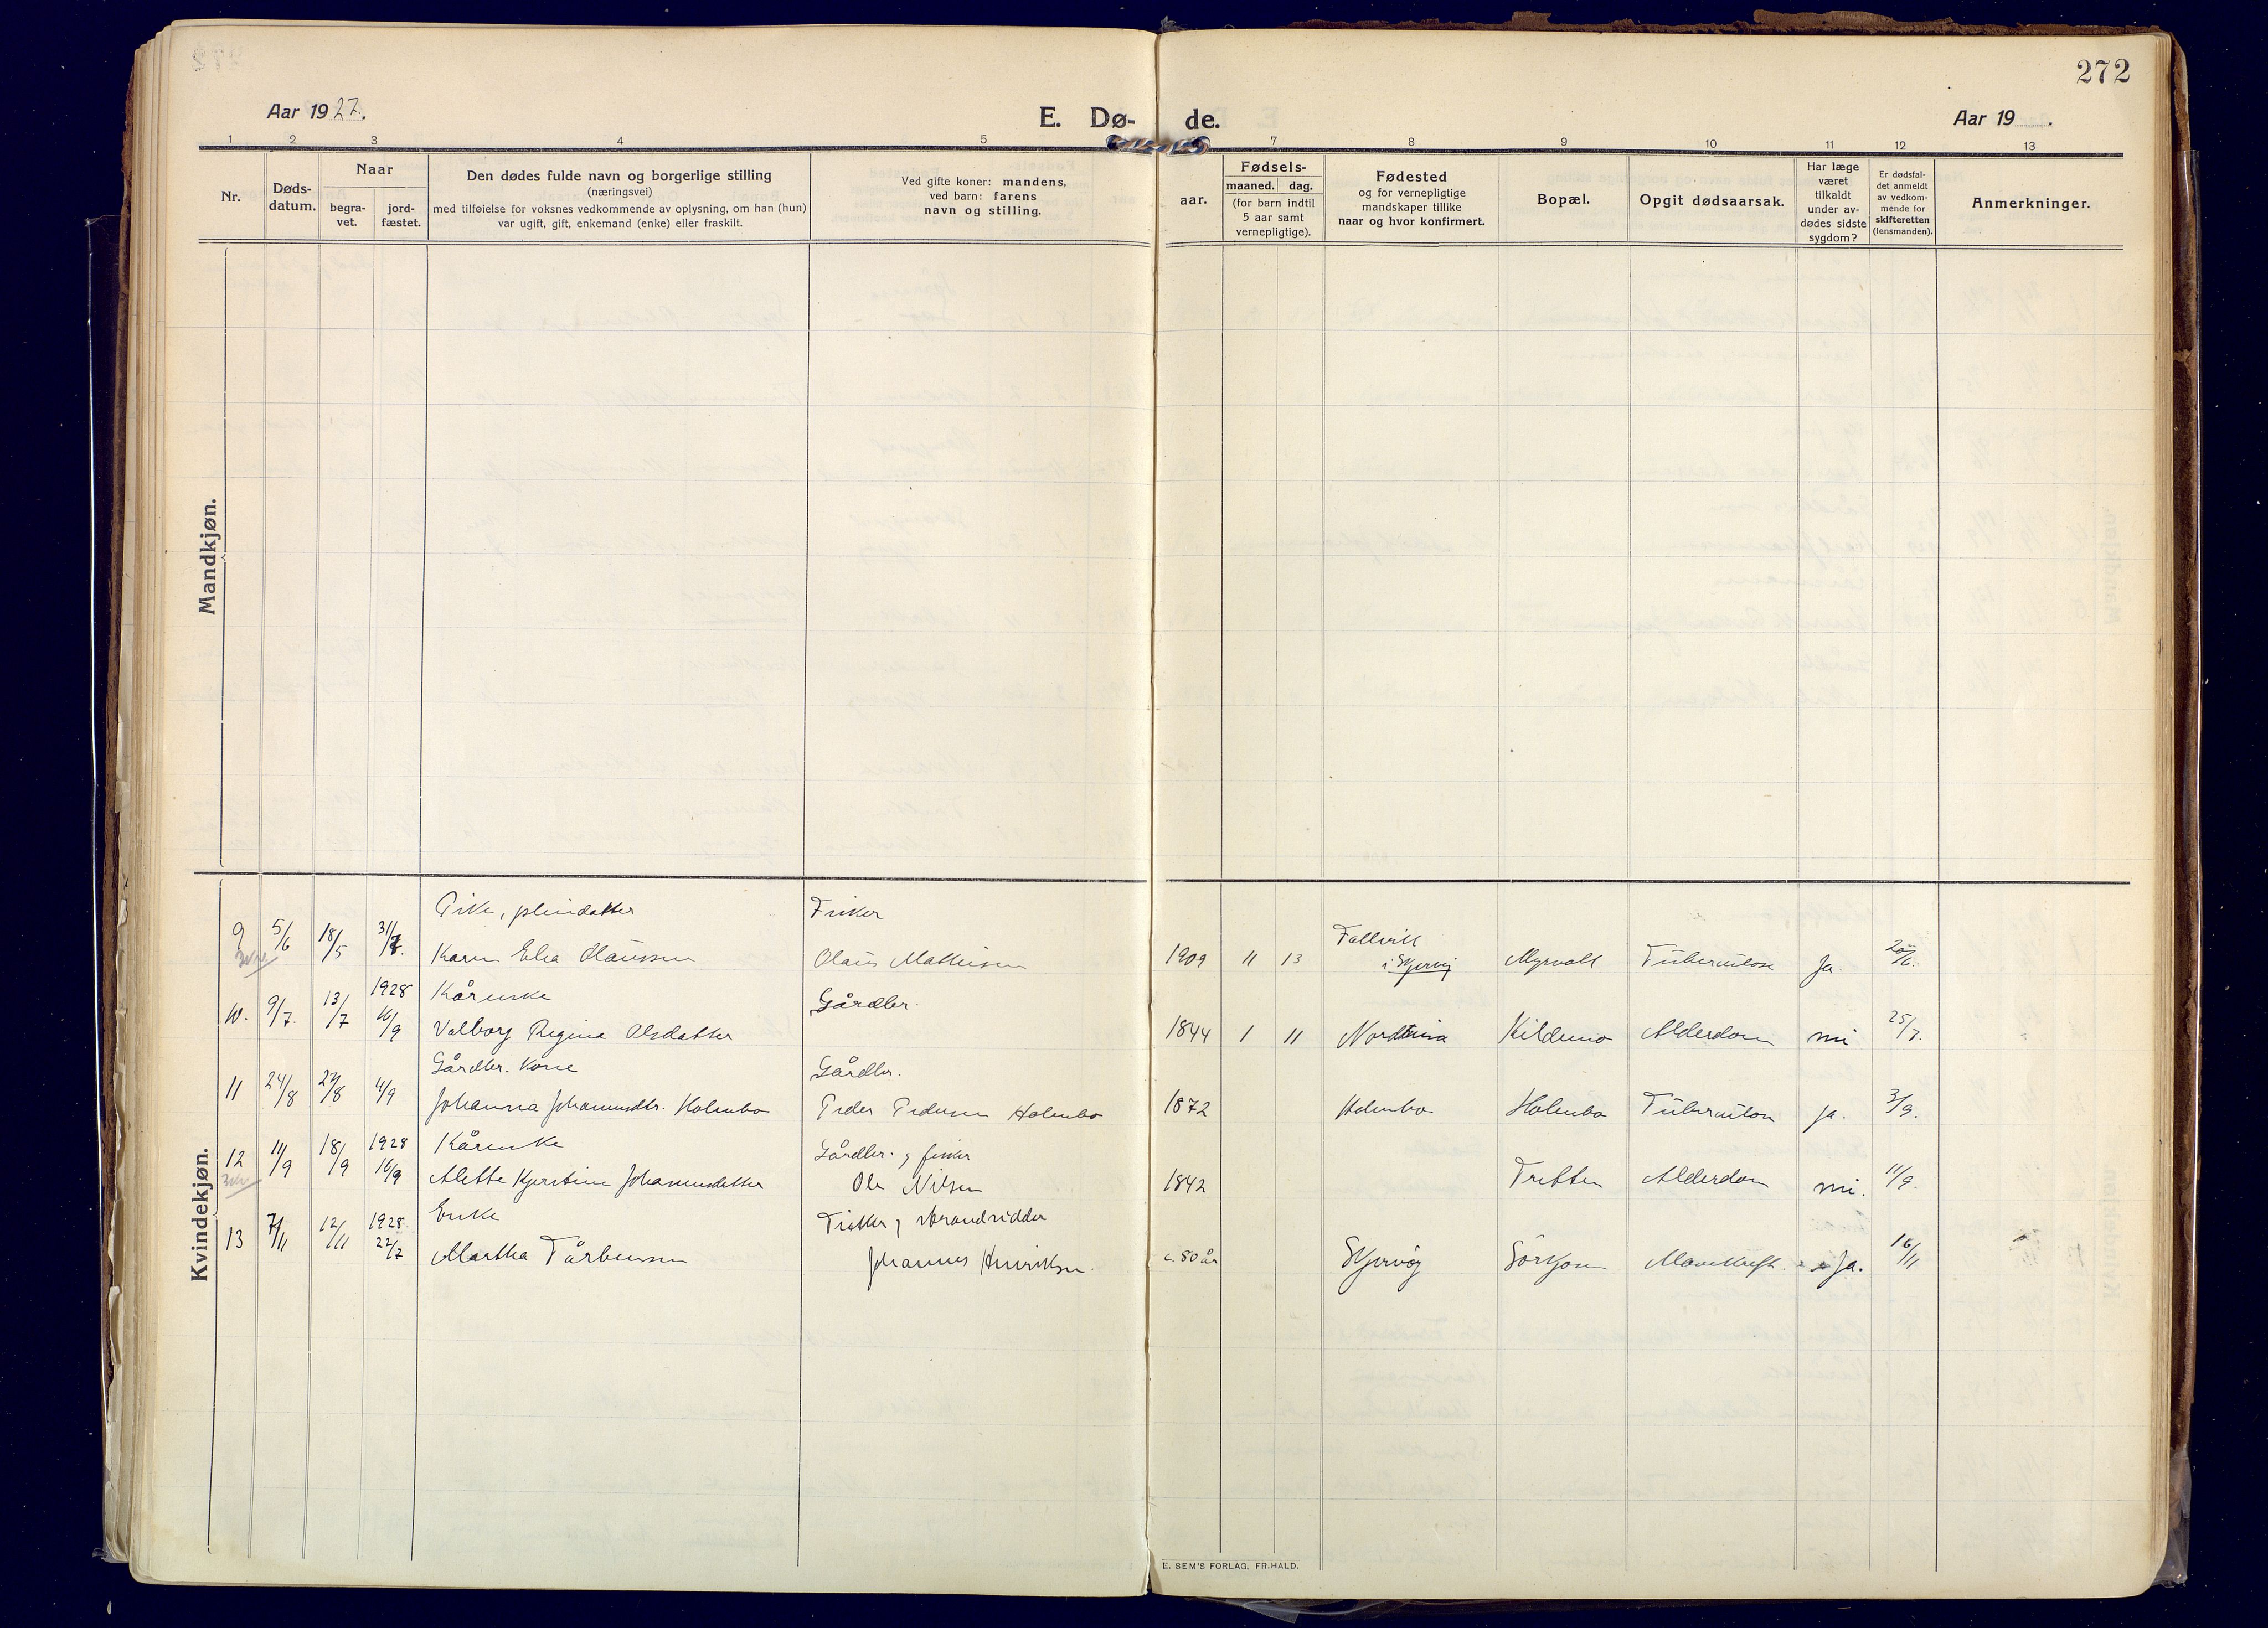 272
Aar 1927.
E. Dø-de.
Aar 19 .
1 2 3 4 5 7 8 9 10 11 12 13
Nr.
Døds-
datum.
Naar
begra-
vet.
jord-
fæstet.
Den dødes fulde navn og borgerlige stilling
(næringsvei)
med tilføielse for voksnes vedkommende av oplysning, om han (hun)
var ugift, gift, enkemand (enke) eller fraskilt.
Ved gifte koner: mandens,
ved barn: farens
navn og stilling.
aar.
Fødsels-
maaned. dag.
(for barn indtil
5 aar samt
vernepligtige).
Fødested
og for vernepligtige
mandskaper tillike
naar og hvor konfirmert.
Bopæl.
Opgit dødsaarsak.
Har læge
været
tilkaldt
under av-
dødes sidste
sygdom?
Er dødsfal-
det anmeldt
av vedkom-
mende for
skifteretten
(lensmanden).
Anmerkninger.
Mandkjøn.
Kvindekjøn.
Pike, pleiedatter Fisker
9 5/6 18/5 31/7 Karen Elea Olaussen Olaus Mathisen 1909 11 13 i Skjervøy Myrvoll Tuberkulose Ja. 20/6.
1928 Kårenke Gårdbr.
10. 9/7. 13/7 16/9 Valborg Regina Olsdatter 1844 1 11 Kildemo Alderdom nei 25/7.
Gårdbr. kone Gårdbr.
11 24/8 27/8 4/9 Johanna Johannesdtr. Holmbo Peder Pedersen Holmbo 1872 Holmbo Holmbo Tuberkulose ja. 3/9.
1928 Kårenke Gårdbr. og fisker
12 11/9 18/9 16/9 Alette Kjerstine Johannesdatter Ole Nilsen 1842 Tretten Alderdom nei. 11/9.
1928. Enke Fisker og strandsidder
13 7/11 12/11 22/7 Martha Tårbensen Johannes Henriksen. c. 80 år Skjervøy Sørkjosen Mavekreft. Ja. 16/11
E. SEM'S FORLAG, FR.HALD.